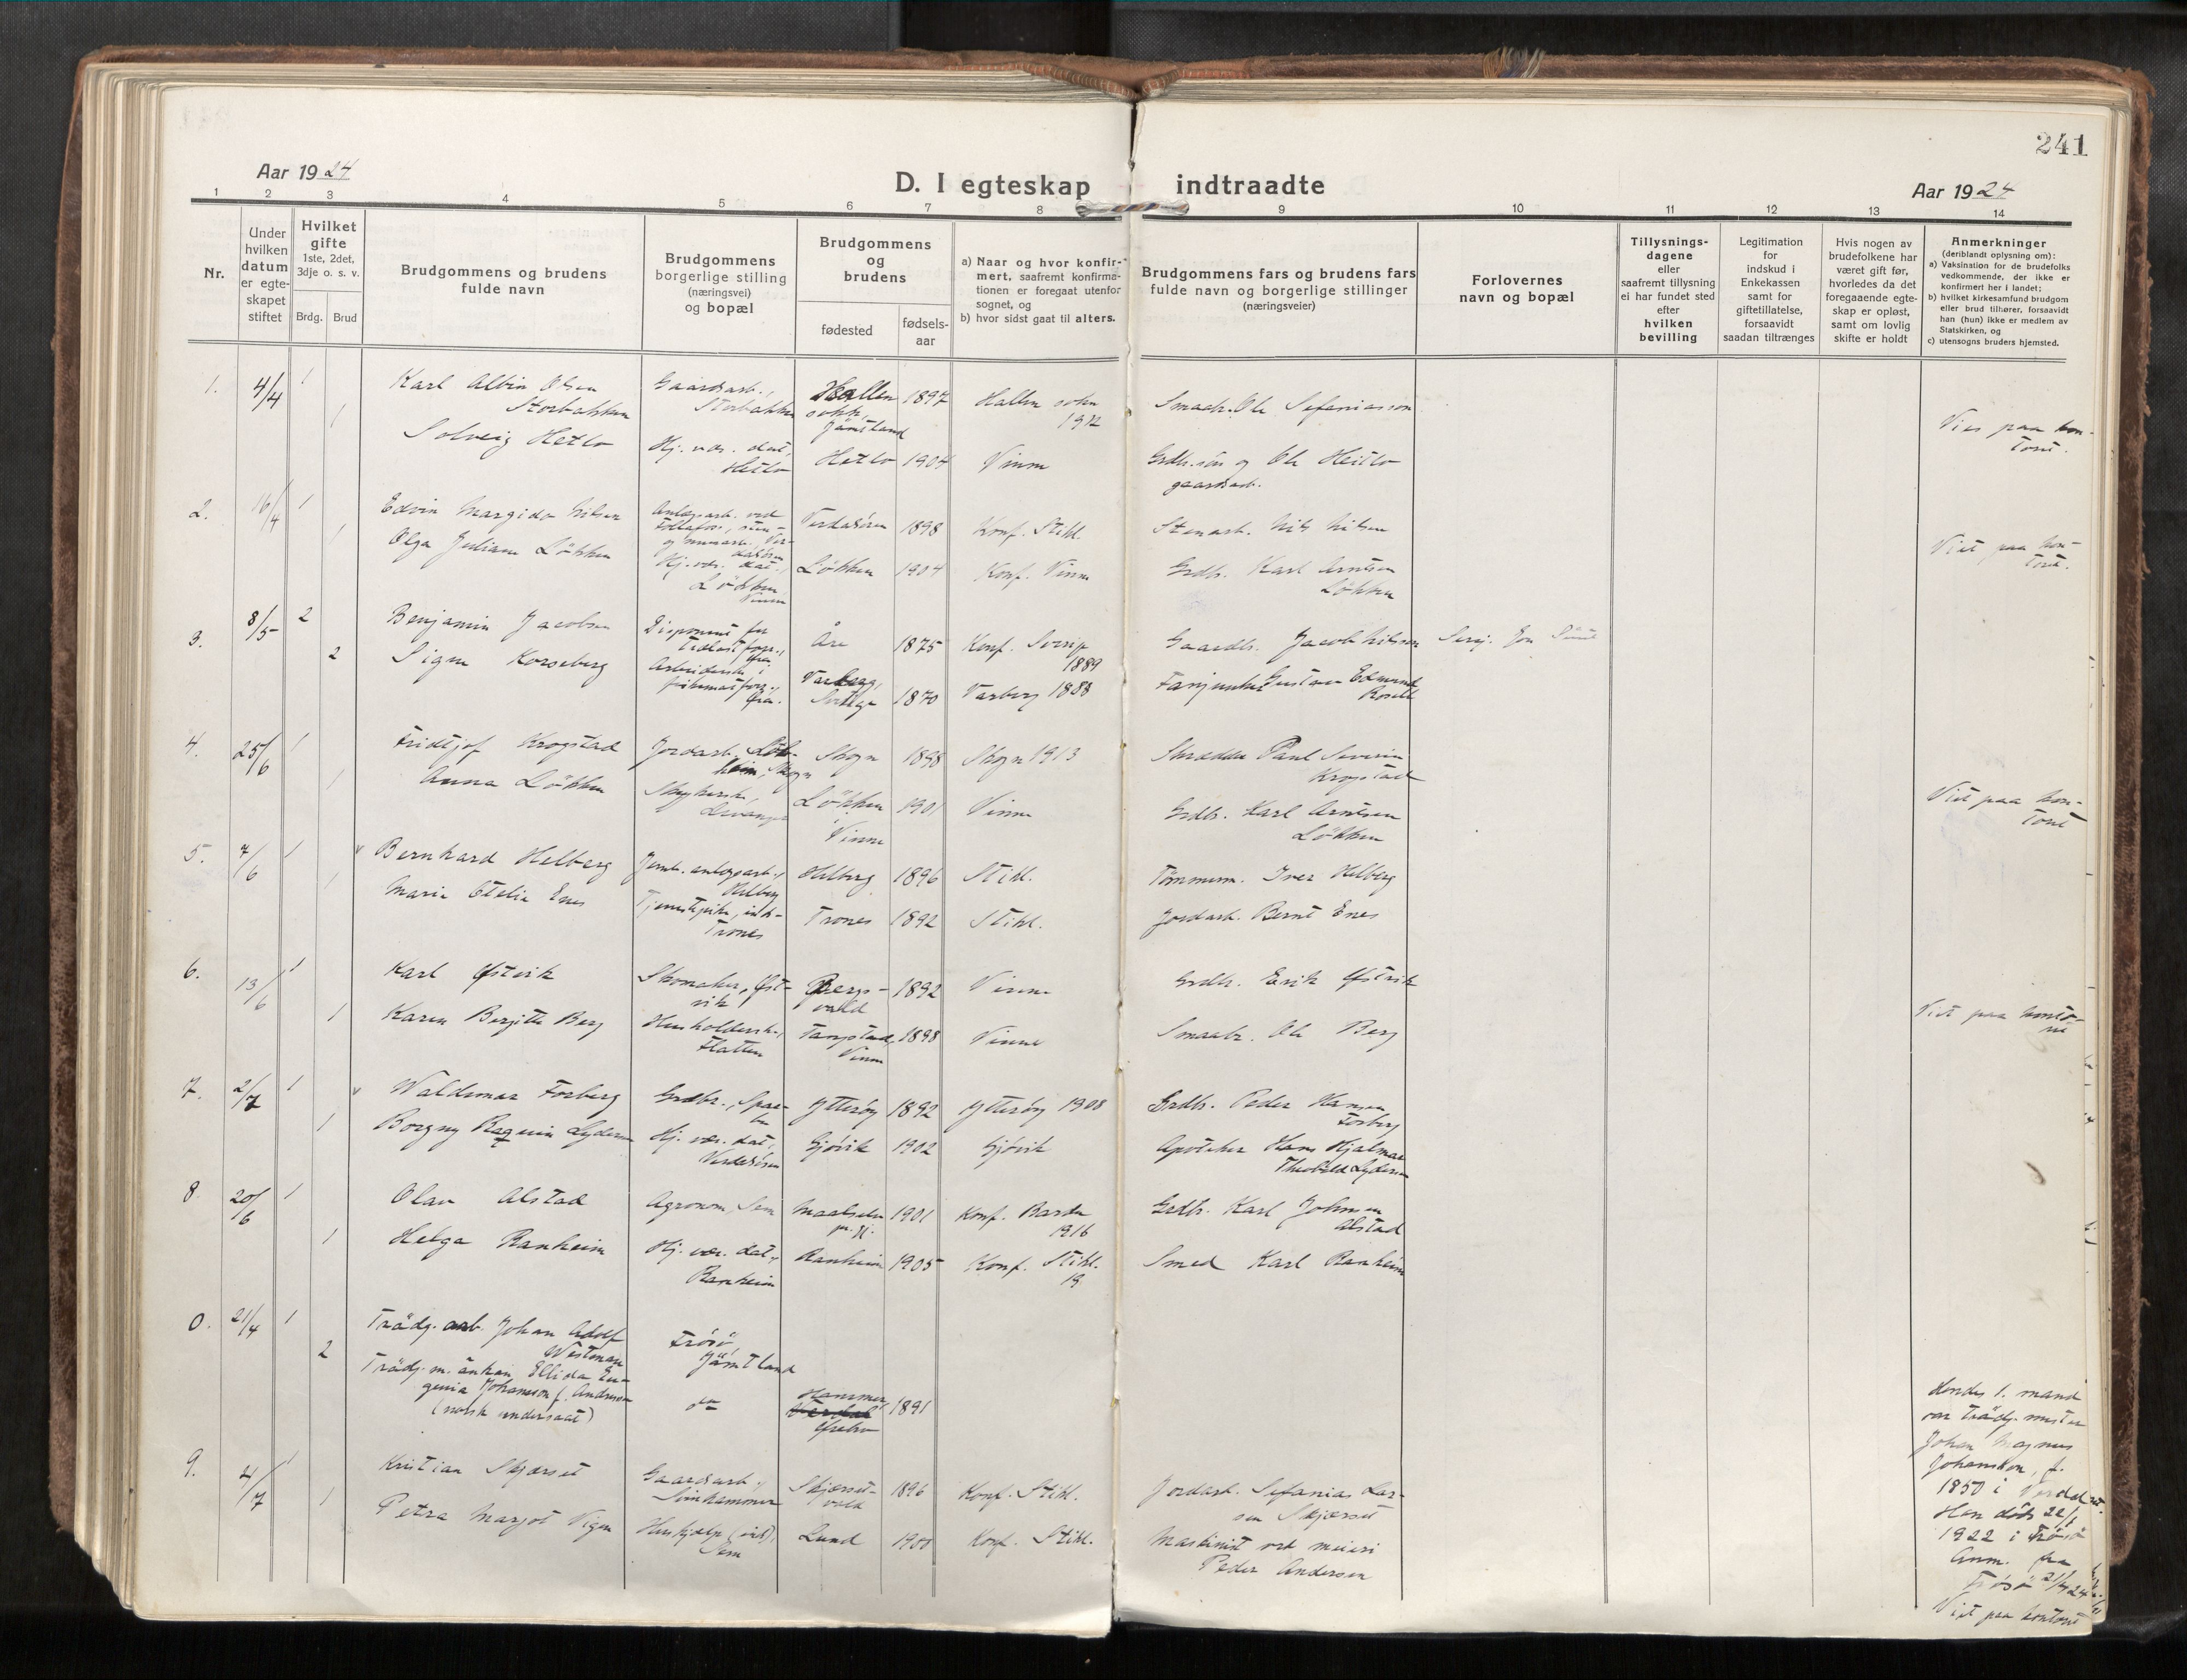 241
Aar 1924
D. I egteskap indtraadte
Aar 1924
1 2 3 4 5 6 7 8 9 10 11 12 13 14
Nr.
Under
hvilken
datum
er egte-
skapet
stiftet
Hvilket
gifte
1ste, 2det,
3dje o. s. v.
Brdg. Brud
Brudgommens og brudens
fulde navn
Brudgommens
borgerlige stilling
(næringsvei)
og bopæl
Brudgommens
og
brudens
fødested
fødsels-
aar
a) Naar og hvor konfir-
mert, saafremt konfirma-
tionen er foregaat utenfor
sognet, og
b) hvor sidst gaat til alters.
Brudgommens fars og brudens fars
fulde navn og borgerlige stillinger
(næringsveier)
Forlovernes
navn og bopæl
Tillysnings-
dagene
eller
saafremt tillysning
ei har fundet sted
efter
hvilken
bevilling
Legitimation
for
indskud i
Enkekassen
samt for
giftetillatelse,
forsaavidt
saadan tiltrænges
Hvis nogen av
brudefolkene har
været gift før,
hvorledes da det
foregaaende egte-
skap er opløst,
samt om lovlig
skifte er holdt
Anmerkninger
(deriblandt oplysning om):
a) Vaksination for de brudefolks
vedkommende, der ikke er
konfirmert her i landet;
b) hvilket kirkesamfund brudgom
eller brud tilhører, forsaavidt
han (hun) ikke er medlem av
Statskirken, og
c) utensogns bruders hjemsted.
1. 4/4 1
Karl Albin Olsen
Storbakken
Gaardsarb.,
Storbakken
Hallen
sokn,
Jämtland
1897
Hallen sokn
1912
Smaabr. Ole Sefaniasson
1
Solveig Hetlo
Hj. vær. dat.,
Hetlo
Hetlo 1904 Vinne
Grdb. søn og Ole Heitlo
gaardsarb.
Viet paa kon-
toret.
2. 16/4 1
Edvin Margido Nilsen
Anlegsarb. ved
Verdalsøren 1898 Konf. Stikl.
Stenarb. Nils Nilsen
1
Olga Juliane Lökken
Hj. vær. dat.,
Lökken,
Vinne
Lökken 1904 Konf. Vinne
Grdb. Karl Arntsen
Lökken
Viet paa kon-
toret.
3. 8/5 2
Benjamin Jacobsen
Disponent for
Åre 1875 Konf. Sverige
1889
Gaardb. Jacob Nilsson
2
Signe Korseberg
Varberg,
Sverige 1870 Varberg 1888
Fanjunker Gustav Edmund
4. 25/6 1
Fridtjof Krogstad
Jordarb.
Skogn
Skogn 1898 Skogn 1913
Skrædder Paul Severin
Krogstad
1
Anna Lökken
Levanger
Lökken
Vinne
1901 Vinne
Grdb. Karl Arntsen
Lökken
Viet paa kon-
toret
5. 7/6 1
v Bernhard Helberg
Jernb. anlegsarb.,
Helberg
Helberg 1896 Stikl.
Tømmerm. Iver Helberg
1
Marie Otelie Enes
Tjenestepike,
Trones
Trones 1892 Stikl.
Jordarb. Bernt Enes
6. 13/6 1
Karl Østvik
Skomaker, Øst-
vik
Bergs-
vald
1892 Vinne
Grdb. Erik Østvik
1
Karen Berjitte Berg
Husholderske,
Flatten
Vinne
1898 Vinne
Smaabr. Ole Berg
Viet paa konto-
ret
7. 2/7 1
v Waldemar Forberg
Grdbr., Spar-
bu
Ytterøy 1892 Ytterøy 1908
Grdb. Peder Hansen
Forberg
1
Borgny Ragnin Lydersen
Hj. vær. dat.,
Verdalsøren
Gjövik 1902 Gjövik
Apoteker Hans Hjalmar
Theobald Lydersen
8. 20/6 1
Olav Alstad
Agronom, Sem
Maalselv
pr. gj.
1901 Konf. Bardu
1916
Grdb. Karl Johnsen
Alstad
1
Helga Ranheim
Hj. vær. dat.,
Ranheim
Ranheim 1905 Konf. Stikl.
19
Smed Karl Ranheim
0. 21/4 1
Trädg. arb. Johan Adolf
Westman
Frösö,
Jämtland
2
Trädg. m. änkan Ellida Eu-
genia Johansson f. Andersson
(norsk undersaat)
do
Hammer,
Verdal
Örebro
1891
Hendes 1. mand
var trädg. mester
Johan Magnus
Johansson, f.
1850 i Verdal.
Han døde 22/1
1922 i Frösö
Anm. fra
Frösö 21/4 24
9. 4/7 1
Kristian Skjærset
Gaardsarb.,
Svinhammer
Skjærset-
vald
1896 Konf. Stikl.
Jordarb. Sefanias Lar-
sen Skjærset
1
Petra Margot Vigen
Hushjælp
Sem
Lund 1900 Konf. Stikl.
Maskinist ved meieri
Peder Andersen
Viet paa kontoret